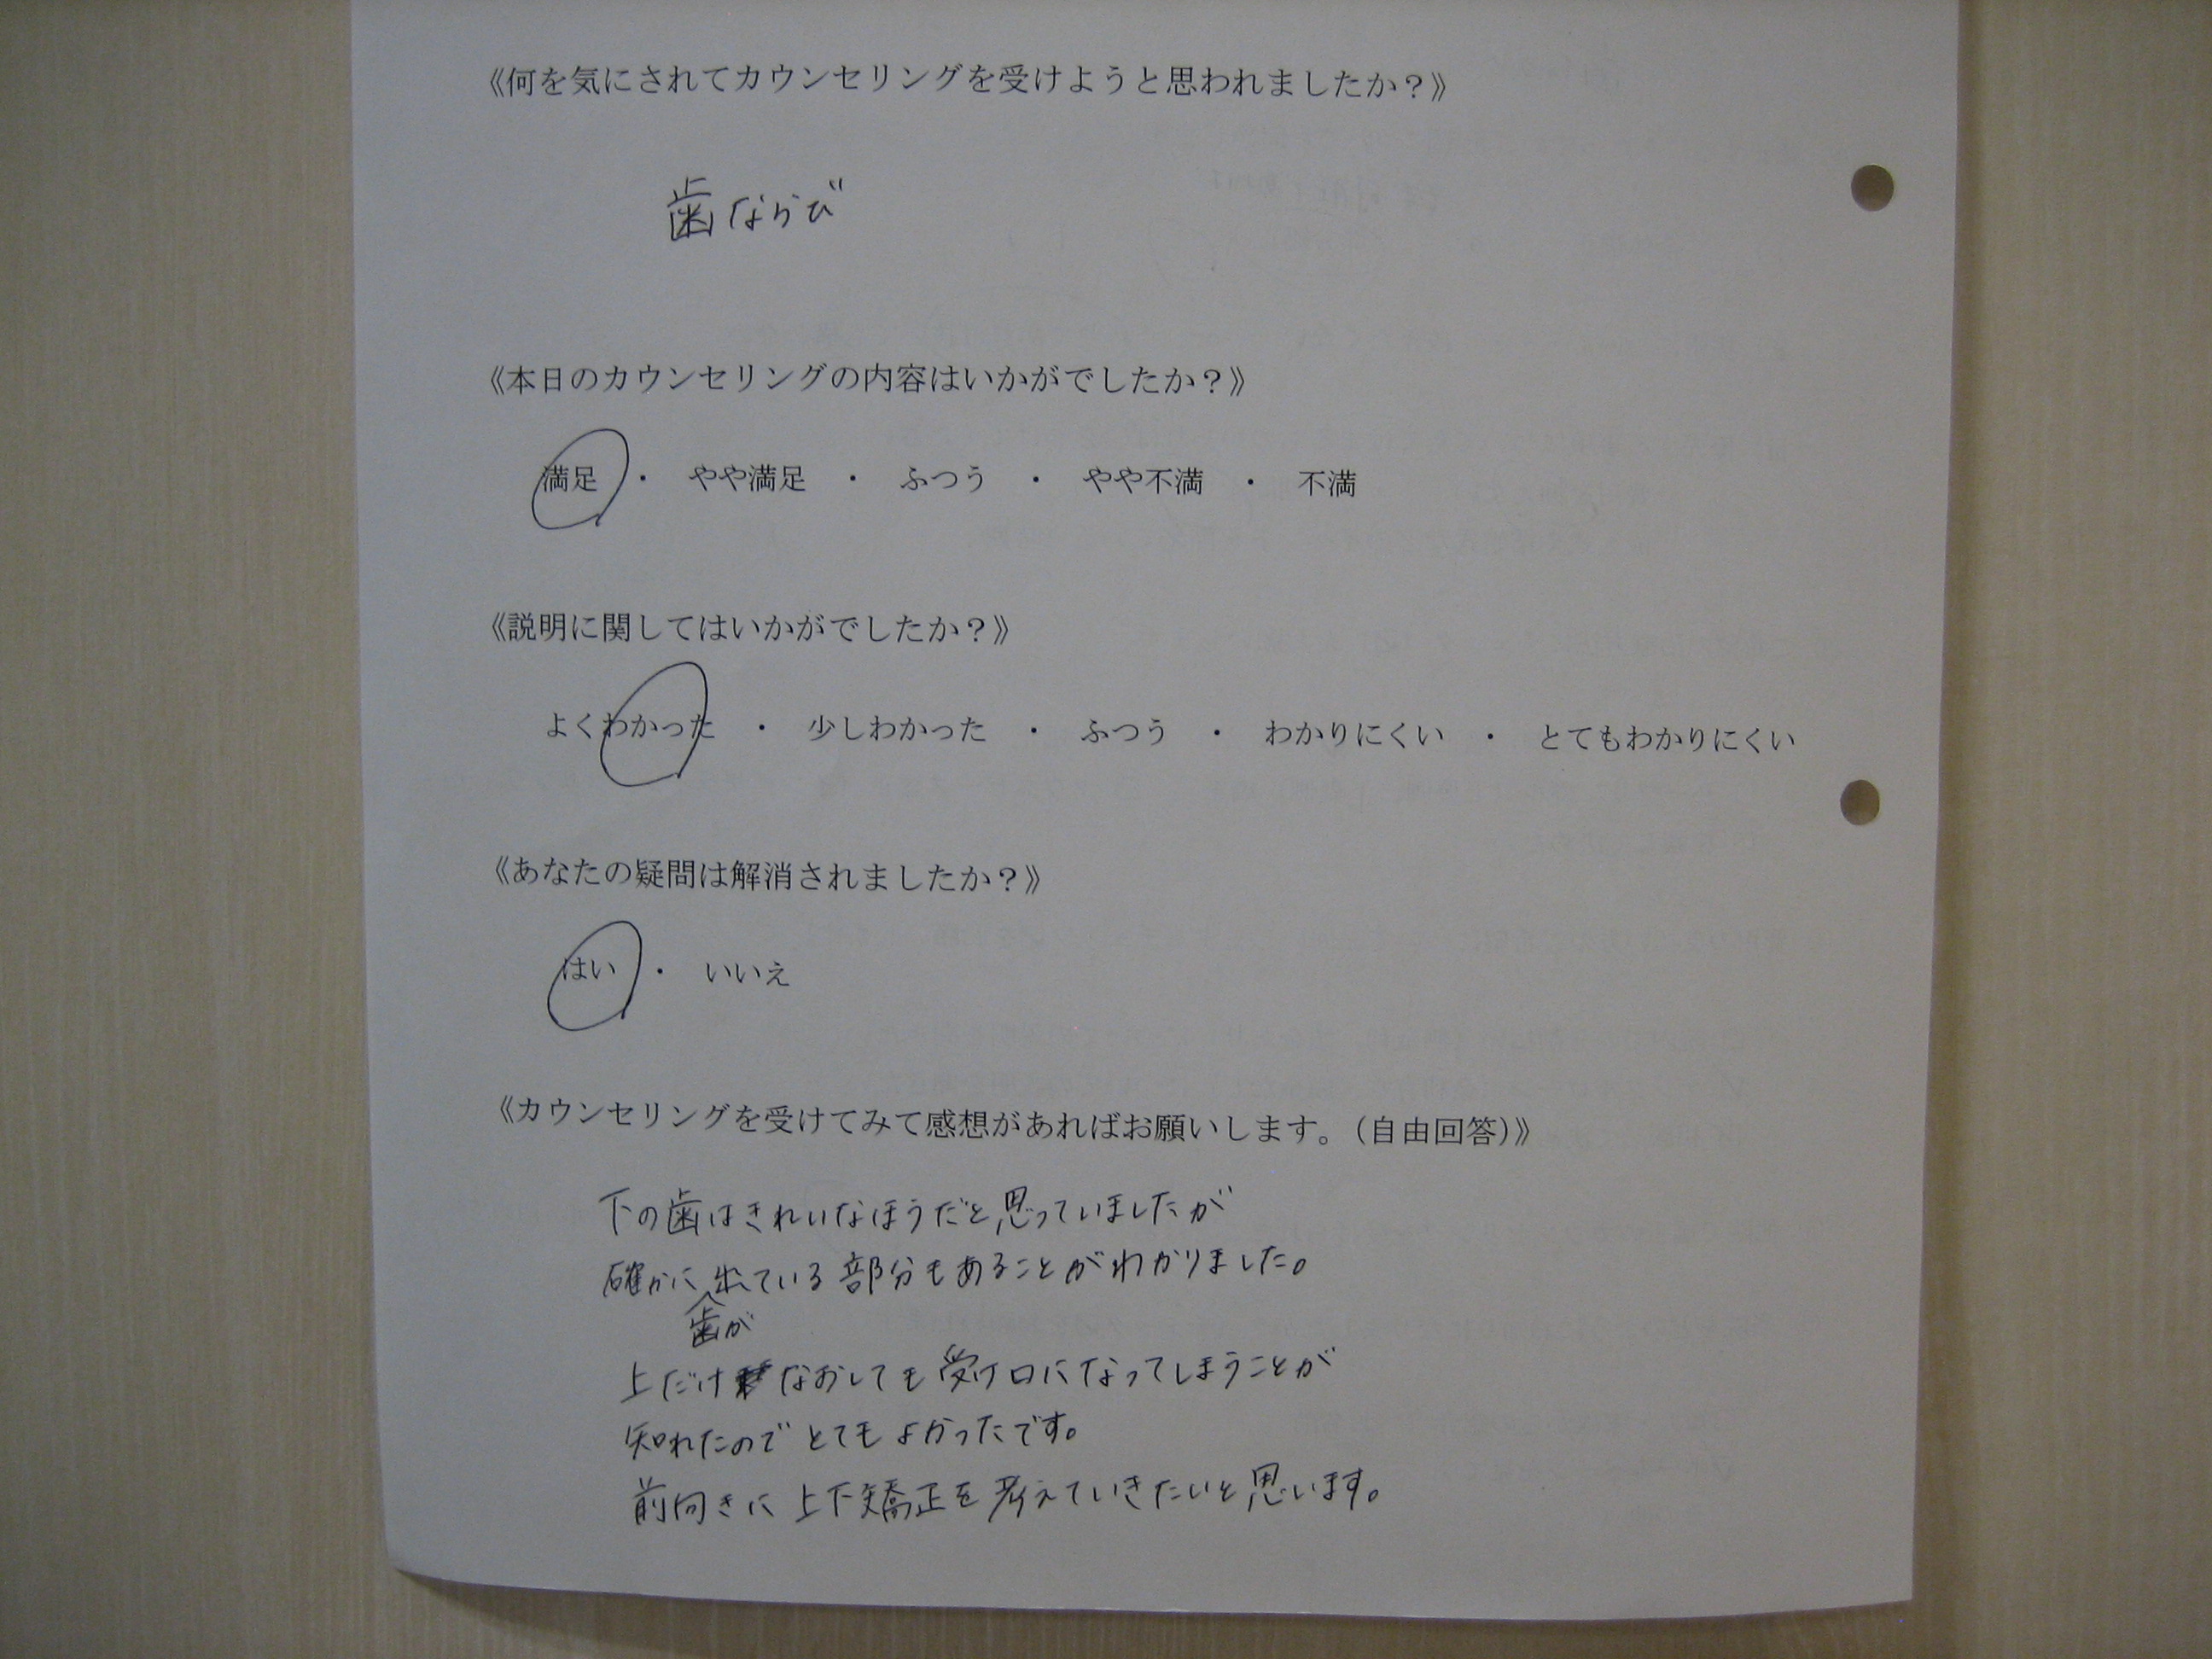 《何を気にされてカウンセリングを受けようと思われましたか？》
歯ならび
《本日のカウンセリングの内容はいかがでしたか？》
満足 ・ やや満足 ・ ふつう ・ やや不満 ・ 不満
《説明に関してはいかがでしたか？》
よくわかった ・ 少しわかった ・ ふつう ・ わかりにくい ・ とてもわかりにくい
《あなたの疑問は解消されましたか？》
はい ・ いいえ
《カウンセリングを受けてみて感想があればお願いします。（自由回答）》
下の歯はきれいなほうだと思っていましたが
確かに出ている部分もあることがわかりました。
歯が
上だけなおしても受け口になってしまうことが
知れたのでとてもよかったです。
前向きに上下矯正を考えていきたいと思います。